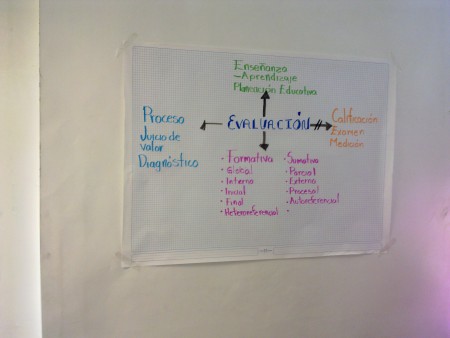 Enseñanza
-Aprendizaje
Planeación Educativa
Proceso
Juicio de
valor
Diagnóstico
EVALUACIÓN
Calificación
Examen
Medición
· Formativa
· Global
· Interna
· Inicial
· Final
· Heteroreferencial
· Sumativa
· Parcial
· Externa
· Procesal
· Autoreferencial